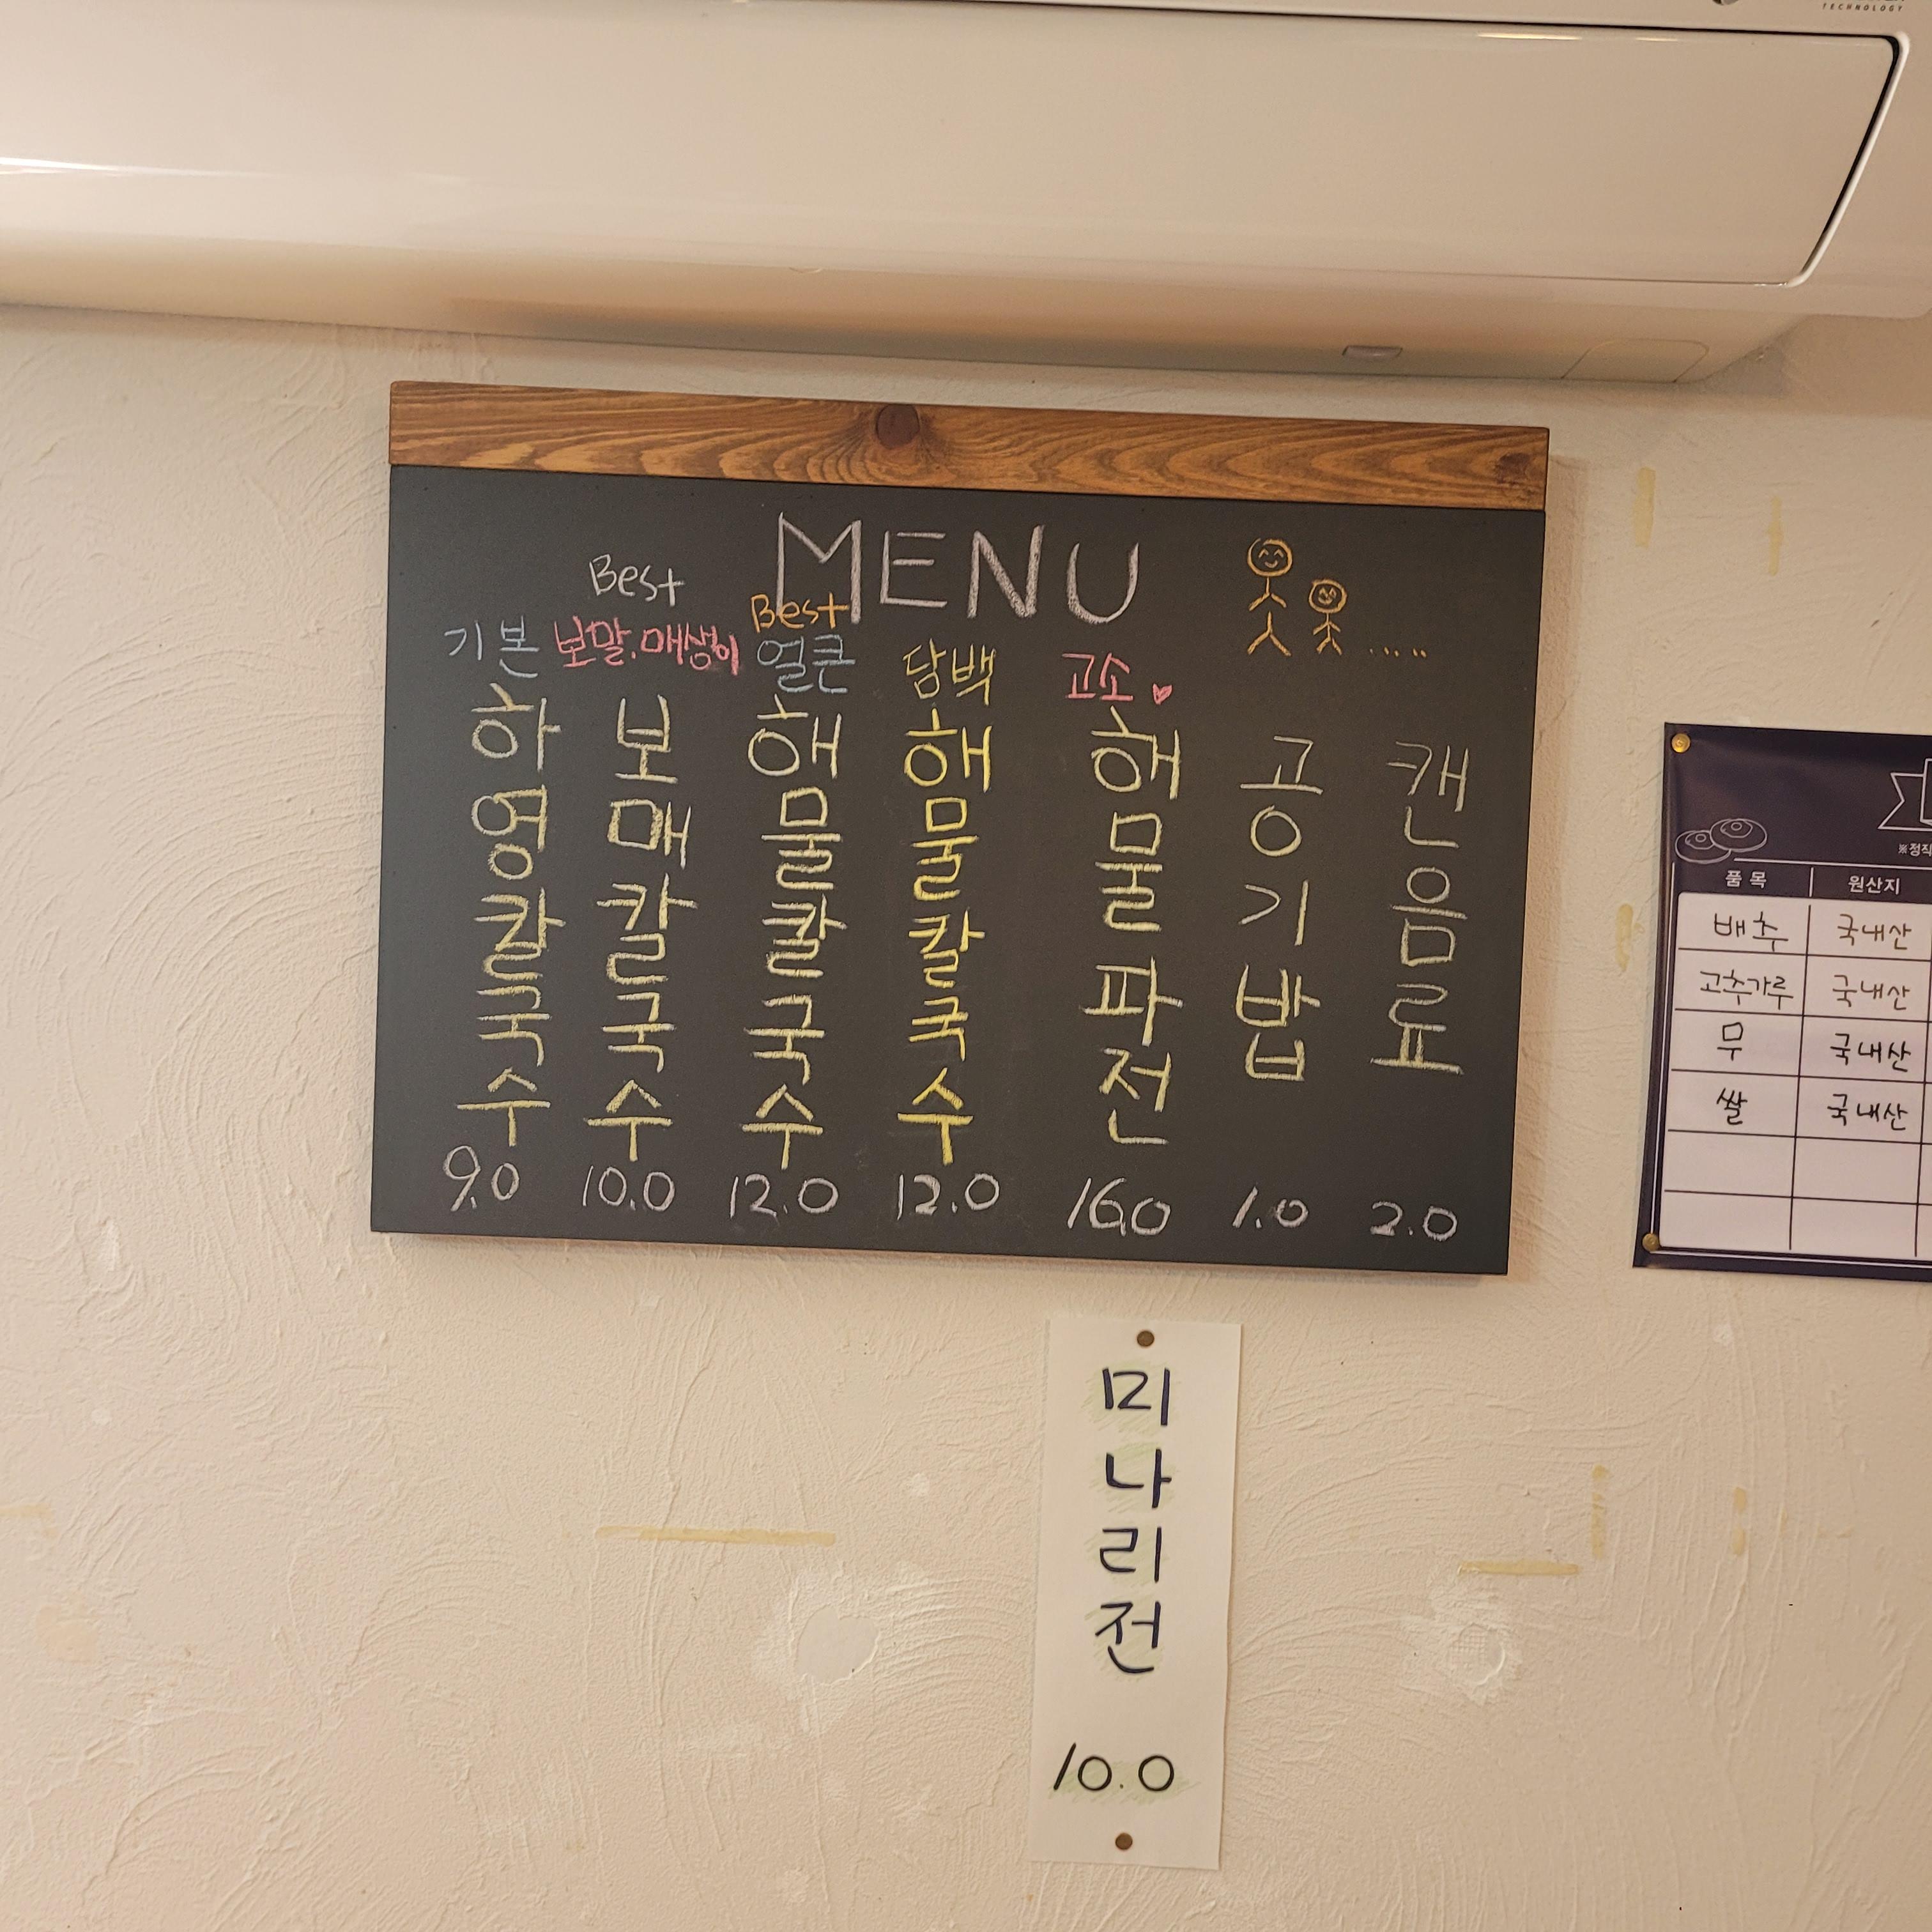 TECHNOLOGY
MENU
Best
Best
기본
보말.매생이
얼큰
담백
고소
하영칼국수
9.0
보매칼국수
10.0
해물칼국수
12.0
해물칼국수
12.0
해물파전
16.0
공기밥
1.0
캔음료
2.0
미나리전
10.0
※정직
품목 원산지
배추 국내산
고추가루 국내산
무 국내산
쌀 국내산